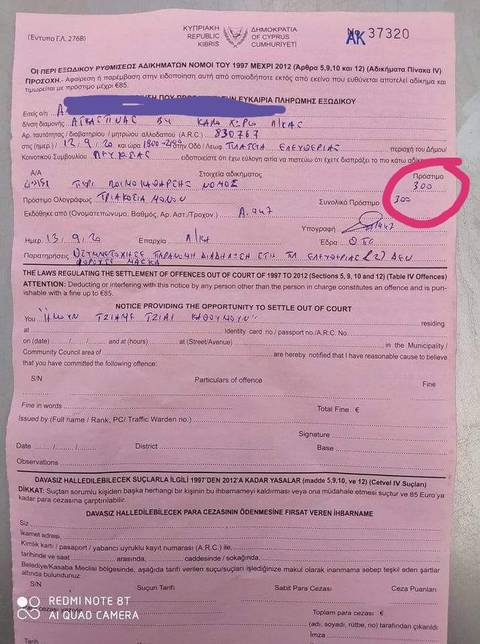 (Έντυπο Γ.Λ. 276Β)
ΚΥΠΡΙΑΚΗ ΔΗΜΟΚΡΑΤΙΑ
REPUBLIC OF CYPRUS
KIBRIS CUMHURIYETI
AK 37320
ΟΙ ΠΕΡΙ ΕΞΩΔΙΚΟΥ ΡΥΘΜΙΣΕΩΣ ΑΔΙΚΗΜΑΤΩΝ ΝΟΜΟΙ ΤΟΥ 1997 ΜΕΧΡΙ 2012 (Άρθρα 5,9,10 και 12) (Αδικήματα Πίνακα IV)
ΠΡΟΣΟΧΗ.- Αφαίρεση ή παρέμβαση στην ειδοποίηση αυτή από οποιοδήποτε εκτός από εκείνα που ευθύνεται αποτελεί αδίκημα και
τιμωρείται με πρόστιμο μέχρι €85.
ΕΥΚΑΙΡΙΑ ΠΛΗΡΩΜΗΣ ΕΞΩΔΙΚΟΥ
Εσείς ο/η
δ/νση διαμονής
Αρ. ταυτότητας / διαβατηρίου / μητρώου αλλοδαπού (A.R.C.) 830767
στις (ημερ.) 12.9.20 και ώρα στην Οδό / Λεωφ. ΠΛΑΤΕΙΑ ΕΛΕΥΘΕΡΙΑΣ περιοχή του Δήμου/
Κοινοτικού Συμβουλίου ειδοποιείστε ότι έχω εύλογη αιτία να πιστεύω ότι έχετε διαπράξει το πιο κάτω αδίκημα
Α/Α Στοιχεία αδικήματος Πρόστιμο
ΠΕΡΙ ΛΟΙΜΟΚΑΘΑΡΣΗΣ ΝΟΜΟΣ 300
Πρόστιμο Ολογράφως ΤΡΙΑΚΟΣΙΑ ΜΟΝΟΝ Συνολικό Πρόστιμο 300
Εκδόθηκε από (Ονοματεπώνυμο, Βαθμός, Αρ. Αστ./Τροχον.) A.947
Υπογραφή
Ημερ. 13.9.20 Επαρχία Λ/ΚΑ Έδρα
Παρατηρήσεις
ΦΟΡΟΥΣΕ ΜΑΣΚΑ
THE LAWS REGULATING THE SETTLEMENT OF OFFENCES OUT OF COURT OF 1997 TO 2012 (Sections 5, 9, 10 and 12) (Table IV Offences)
ATTENTION: Deducting or interfering with this notice by any person other than the person in charge constitutes an offence and is pun-
ishable with a fine up to €85.
NOTICE PROVIDING THE OPPORTUNITY TO SETTLE OUT OF COURT
You residing
at Identity card no / passport no./A.R.C. No.
on (date) and at (hours) at (Street/Avenue) in the Municipality /
Community Council area of are hereby notified that I have reasonable cause to believe
that you have committed the following offence:
S/N Particulars of offence Fine
Fine in words Total Fine €
Issued by (Full name / Rank, PC/ Traffic Warden no.)
Signature
Date District Base
Observations
DAVASIZ HALLEDİLEBİLECEK SUÇLARLA İLGİLİ 1997'DEN 2012'A KADAR YASALAR (madde 5,9,10, ve 12) (Cetvel IV Suçları)
DİKKAT: Suçtan sorumlu kişiden başka herhangi bir kişinin bu ihbarnameyi kaldırması veya ona müdahale etmesi suçtur ve 85 Euro'ya
kadar para cezasına çarptırılabilir.
DAVASIZ HALLEDİLEBİLECEK PARA CEZASININ ÖDENMESİNE FIRSAT VEREN İHBARNAME
Siz
ikamet adresi,
Kimlik kartı / pasaport / yabancı uyruklu kayıt numarası (A.R.C.) ile,
tarihinde ve saat arasında, caddesinde / sokağında,
Belediye/Kasaba Meclisi bölgesinde, aşağıda tarifi verilen suçu/suçları işlediğinize makul olarak inanmama sebep teşkil eden şartlar
altında bulundunuz:
S/N Suçun Tarifi Sabit Para Cezası Ceza Puanları
Toplam para cezası €
(adı, soyadı, rütbe, no) tarafından
İmza
REDMI NOTE 8T
AI QUAD CAMERA